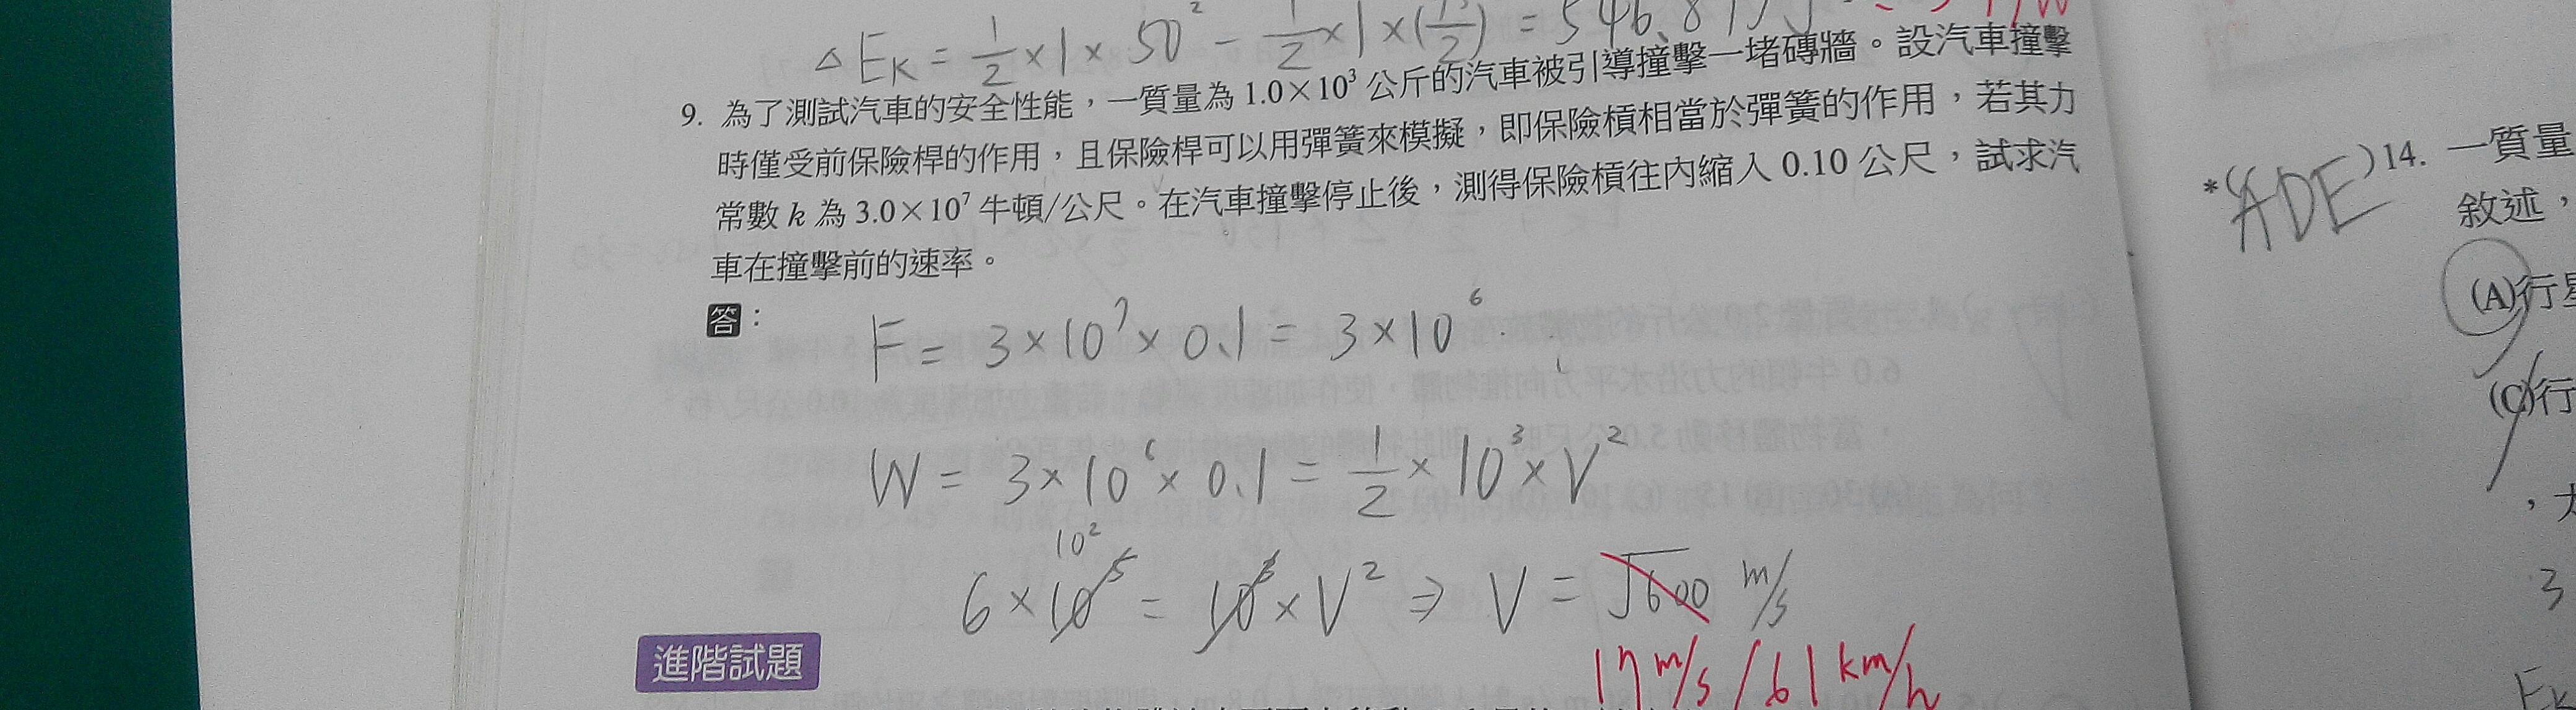 △E_K = 1/2 × 1 × 50² - 1/2 × 1 × ( /2) = 546.875J
9. 為了測試汽車的安全性能，一質量為 1.0×10³ 公斤的汽車被引導撞擊一堵磚牆。設汽車撞擊
時僅受前保險桿的作用，且保險桿可以用彈簧來模擬，即保險槓相當於彈簧的作用，若其力
常數 k 為 3.0×10⁷ 牛頓/公尺。在汽車撞擊停止後，測得保險槓往內縮入 0.10 公尺，試求汽
車在撞擊前的速率。
答：
F = 3×10⁷×0.1 = 3×10⁶
W = 3×10⁶×0.1 = 1/2×10³×V²
10²
6×10⁵ = 10³×V² ⇒ V = √600 m/s
17 m/s / 61 km/h
進階試題
*(ADE)14. 一質量
敘述，
(A)行星
(C)行
，太
3